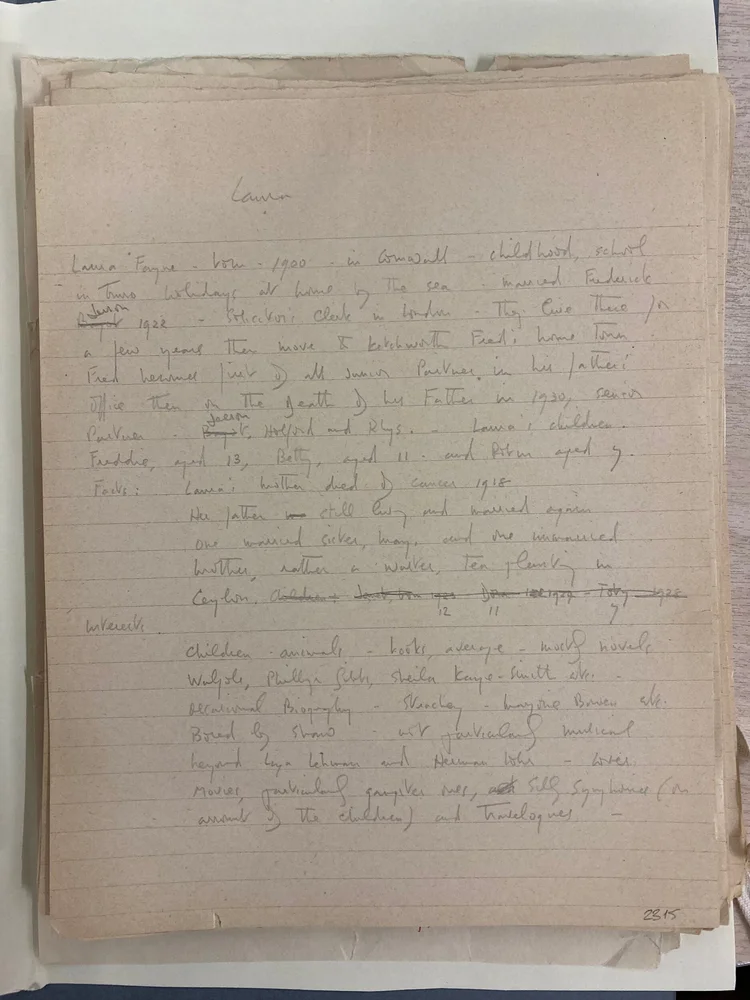 Laura
Laura Fayne - born - 1900 - in Cornwall - childhood, school
in Truro holidays at home by the sea - married Frederick
Jesson
1922 - Solicitor's Clerk in London - They live there for
a few years then move to Ketchworth Fred's home town.
Fred becomes first of all junior Partner in his father's
office then on the Death of his Father in 1930, senior
Jesson
Partner - Holford and Rhys. - Laura's children.
Freddie, aged 13, Betty, aged 11 - and Robin aged 7.
Facts: Laura's mother died of cancer 1918
Her father still living and married again
one married sister, May, and one unmarried
brother, rather a waster, tea planting in
Ceylon, Children - born - Toby - 1928
12 11 7
Interests.
Children - animals - books, average - mostly novels
Walpole, Phillip Gibbs, Sheila Kaye-Smith etc. -
occasional Biography - Strachey - Marjorie Bowen etc.
Bored by Shaw - not particularly musical
beyond Liza Lehman and Herman Lohr - loves
Movies, particularly gangster ones, Silly Symphonies (on
account of the children) and Travelogues -
2315